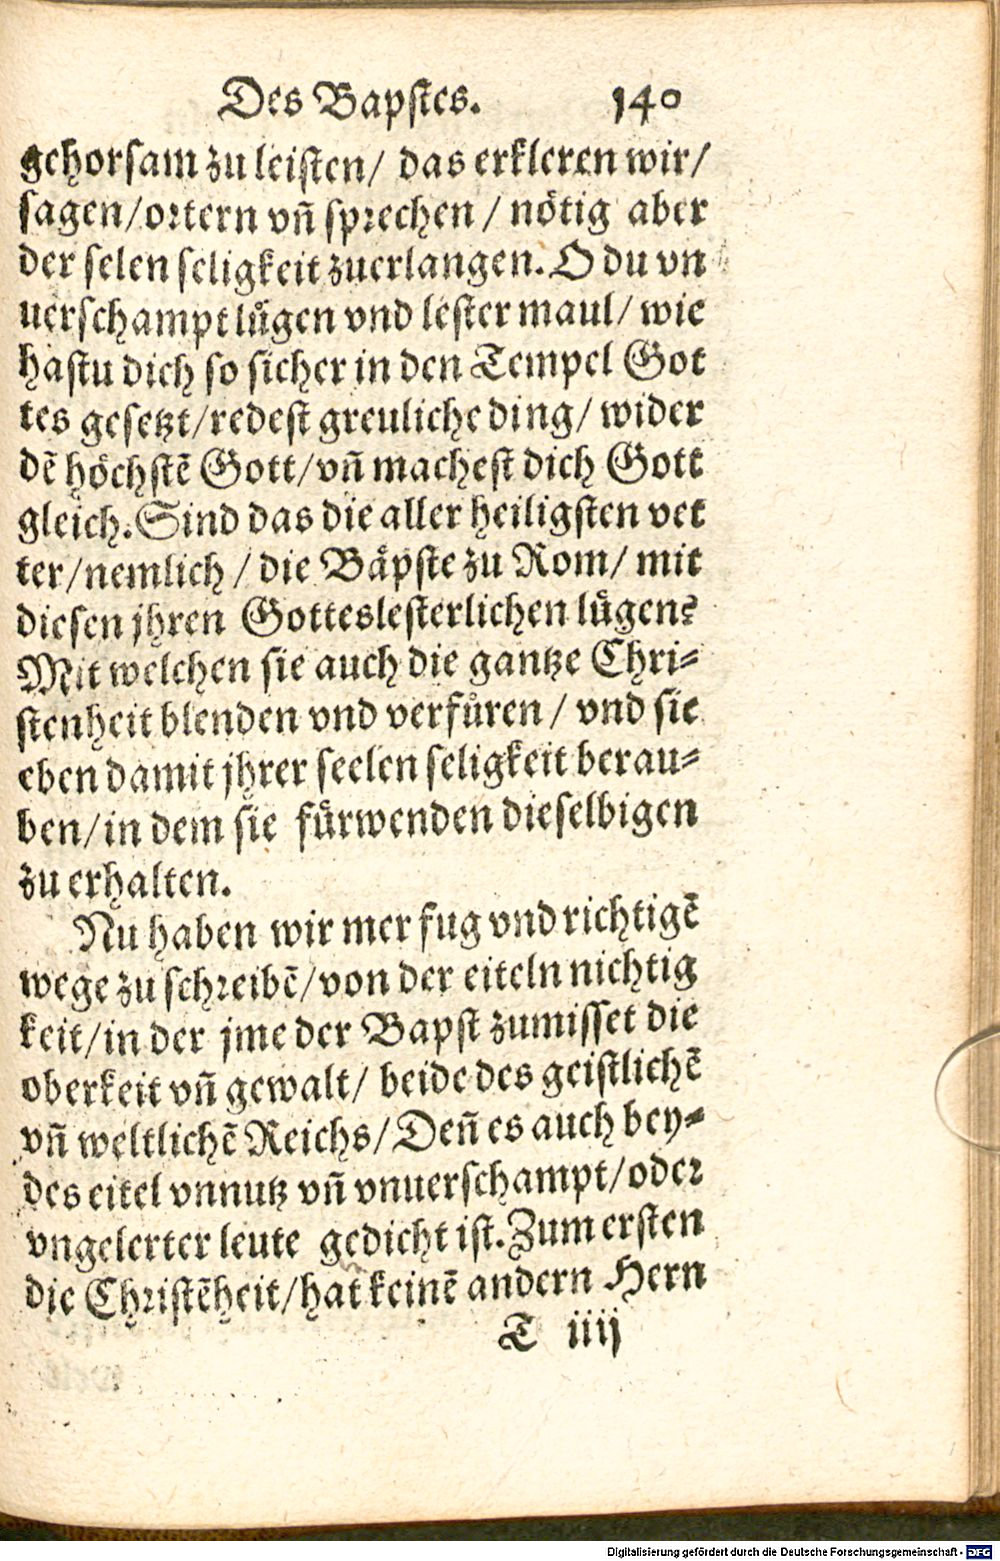 Des Bapstes. 140
gehorsam zu leisten/ das erkleren wir/
sagen/ortern vn̄ sprechen / nötig aber
der selen seligkeit zuerlangen. O du vn
uerschampt lügen vnd lester maul/ wie
hastu dich so sicher in den Tempel Got
tes gesetzt/redest greuliche ding/ wider
dē höchstē Gott/vn̄ machest dich Gott
gleich. Sind das die aller heiligsten vet
ter/nemlich / die Bäpste zu Rom/ mit
diesen jhren Gotteslesterlichen lügen?
Mit welchen sie auch die gantze Chri-
stenheit blenden vnd verfüren / vnd sie
eben damit jhrer seelen seligkeit berau-
ben/in dem sie fürwenden dieselbigen
zu erhalten.
Nu haben wir mer fug vnd richtigē
wege zu schreibē/von der eiteln nichtig
keit/in der jme der Bapst zumisset die
oberkeit vn̄ gewalt/ beide des geistlichē
vn̄ weltlichē Reichs/Den̄ es auch bey-
des eitel vnnutz vn̄ vnuerschampt/oder
vngelerter leute gedicht ist. Zum ersten
die Christēheit/hat keinē andern Hern
T iiij
Digitalisierung gefördert durch die Deutsche Forschungsgemeinschaft - DFG